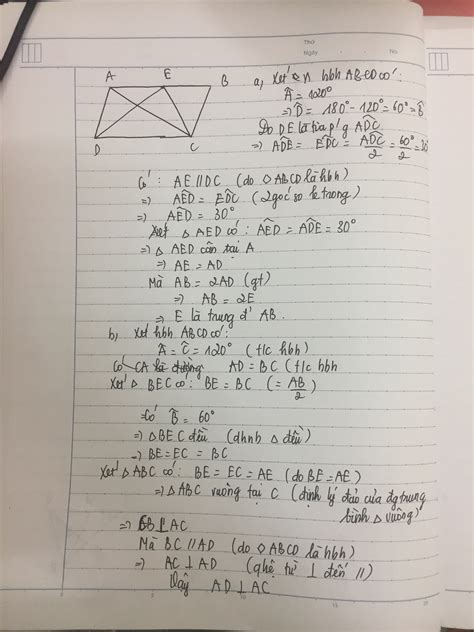 Thứ
Ngày
No
A
E
B
D
C
a, Xét hbh ABCD có:
Â = 120°
⇒ D̂ = 180° - 120° = 60° = B̂
Do DE là tia p/g ADC
⇒ ADE = EDC = ADC/2 = 60°/2 = 30°
Có: AE // DC (do ◇ ABCD là hbh)
⇒ AED = EDC (2 góc so le trong)
⇒ AED = 30°
Xét △ AED có: AED = ADE = 30°
⇒ △ AED cân tại A
⇒ AE = AD
Mà AB = 2AD (gt)
⇒ AB = 2E
⇒ E là trung đ' AB.
b, Xét hbh ABCD có:
Â = Ĉ = 120° (t/c hbh)
Có CA là đường AD = BC (t/c hbh
Xét △ BEC có: BE = BC (= AB/2)
Có B̂ = 60°
⇒ △ BEC đều (dhnb △ đều)
⇒ BE = EC = BC
Xét △ ABC có: BE = EC = AE (do BE = AE)
⇒ △ ABC vuông tại C (định lý đảo của đg trung
bình △ vuông)
⇒ CB ⊥ AC
Mà BC // AD (do ◇ ABCD là hbh)
⇒ AC ⊥ AD (qhệ từ ⊥ đến //)
Vậy AD ⊥ AC